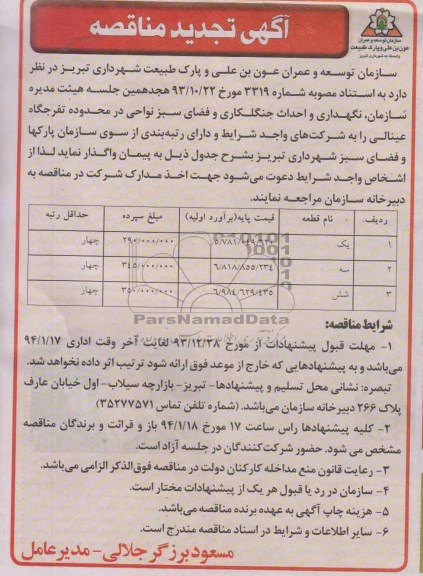 آگهی تجدید مناقصه
سازمان توسعه و عمران
عون بن علی و پارک طبیعت
سازمان توسعه و عمران عون بن علی و پارک طبیعت شهرداری تبریز در نظر
دارد به استناد مصوبه شماره ۳۳۱۹ مورخ ۹۳/۱۰/۲۲ هجدهمین جلسه هیئت مدیره
سازمان، نگهداری و احداث جنگلکاری و فضای سبز نواحی در محدوده تفرجگاه
عینالی را به شرکت‌های واجد شرایط و دارای رتبه‌بندی از سوی سازمان پارکها
و فضای سبز شهرداری تبریز بشرح جدول ذیل به پیمان واگذار نماید لذا از
اشخاص واجد شرایط دعوت می‌شود جهت اخذ مدارک شرکت در مناقصه به
دبیرخانه سازمان مراجعه نمایند.
ردیف نام قطعه قیمت پایه(برآورد اولیه) مبلغ سپرده حداقل رتبه
۱ یک ۲۹۰/۰۰۰/۰۰۰ چهار
۲ سه ۶/۸۱۸/۸۵۵/۲۳۴ ۳۴۵/۰۰۰/۰۰۰ چهار
۳ شش ۶/۹۸۴/۶۲۹/۴۳۵ ۳۵۰/۰۰۰/۰۰۰ چهار
ParsNamadData
شرایط مناقصه:
۱- مهلت قبول پیشنهادات از مورخ ۹۳/۱۲/۲۸ لغایت آخر وقت اداری ۹۴/۱/۱۷
می‌باشد و به پیشنهادهایی که خارج از موعد فوق ارائه شود ترتیب اثر داده نخواهد شد.
تبصره: نشانی محل تسلیم و پیشنهادها- تبریز- بازارچه سیلاب- اول خیابان عارف
پلاک ۲۶۶ دبیرخانه سازمان می‌باشد. (شماره تلفن تماس ۳۵۲۷۷۵۷۱)
۲- کلیه پیشنهادها راس ساعت ۱۷ مورخ ۹۴/۱/۱۸ باز و قرائت و برندگان مناقصه
مشخص می شود. حضور شرکت‌کنندگان در جلسه آزاد است.
۳- رعایت قانون منع مداخله کارکنان دولت در مناقصه فوق‌الذکر الزامی می‌باشد.
۴- سازمان در رد یا قبول هر یک از پیشنهادات مختار است.
۵- هزینه چاپ آگهی به عهده برنده مناقصه می‌باشد.
۶- سایر اطلاعات و شرایط در اسناد مناقصه مندرج است.
مسعود برزگر جلالی- مدیرعامل